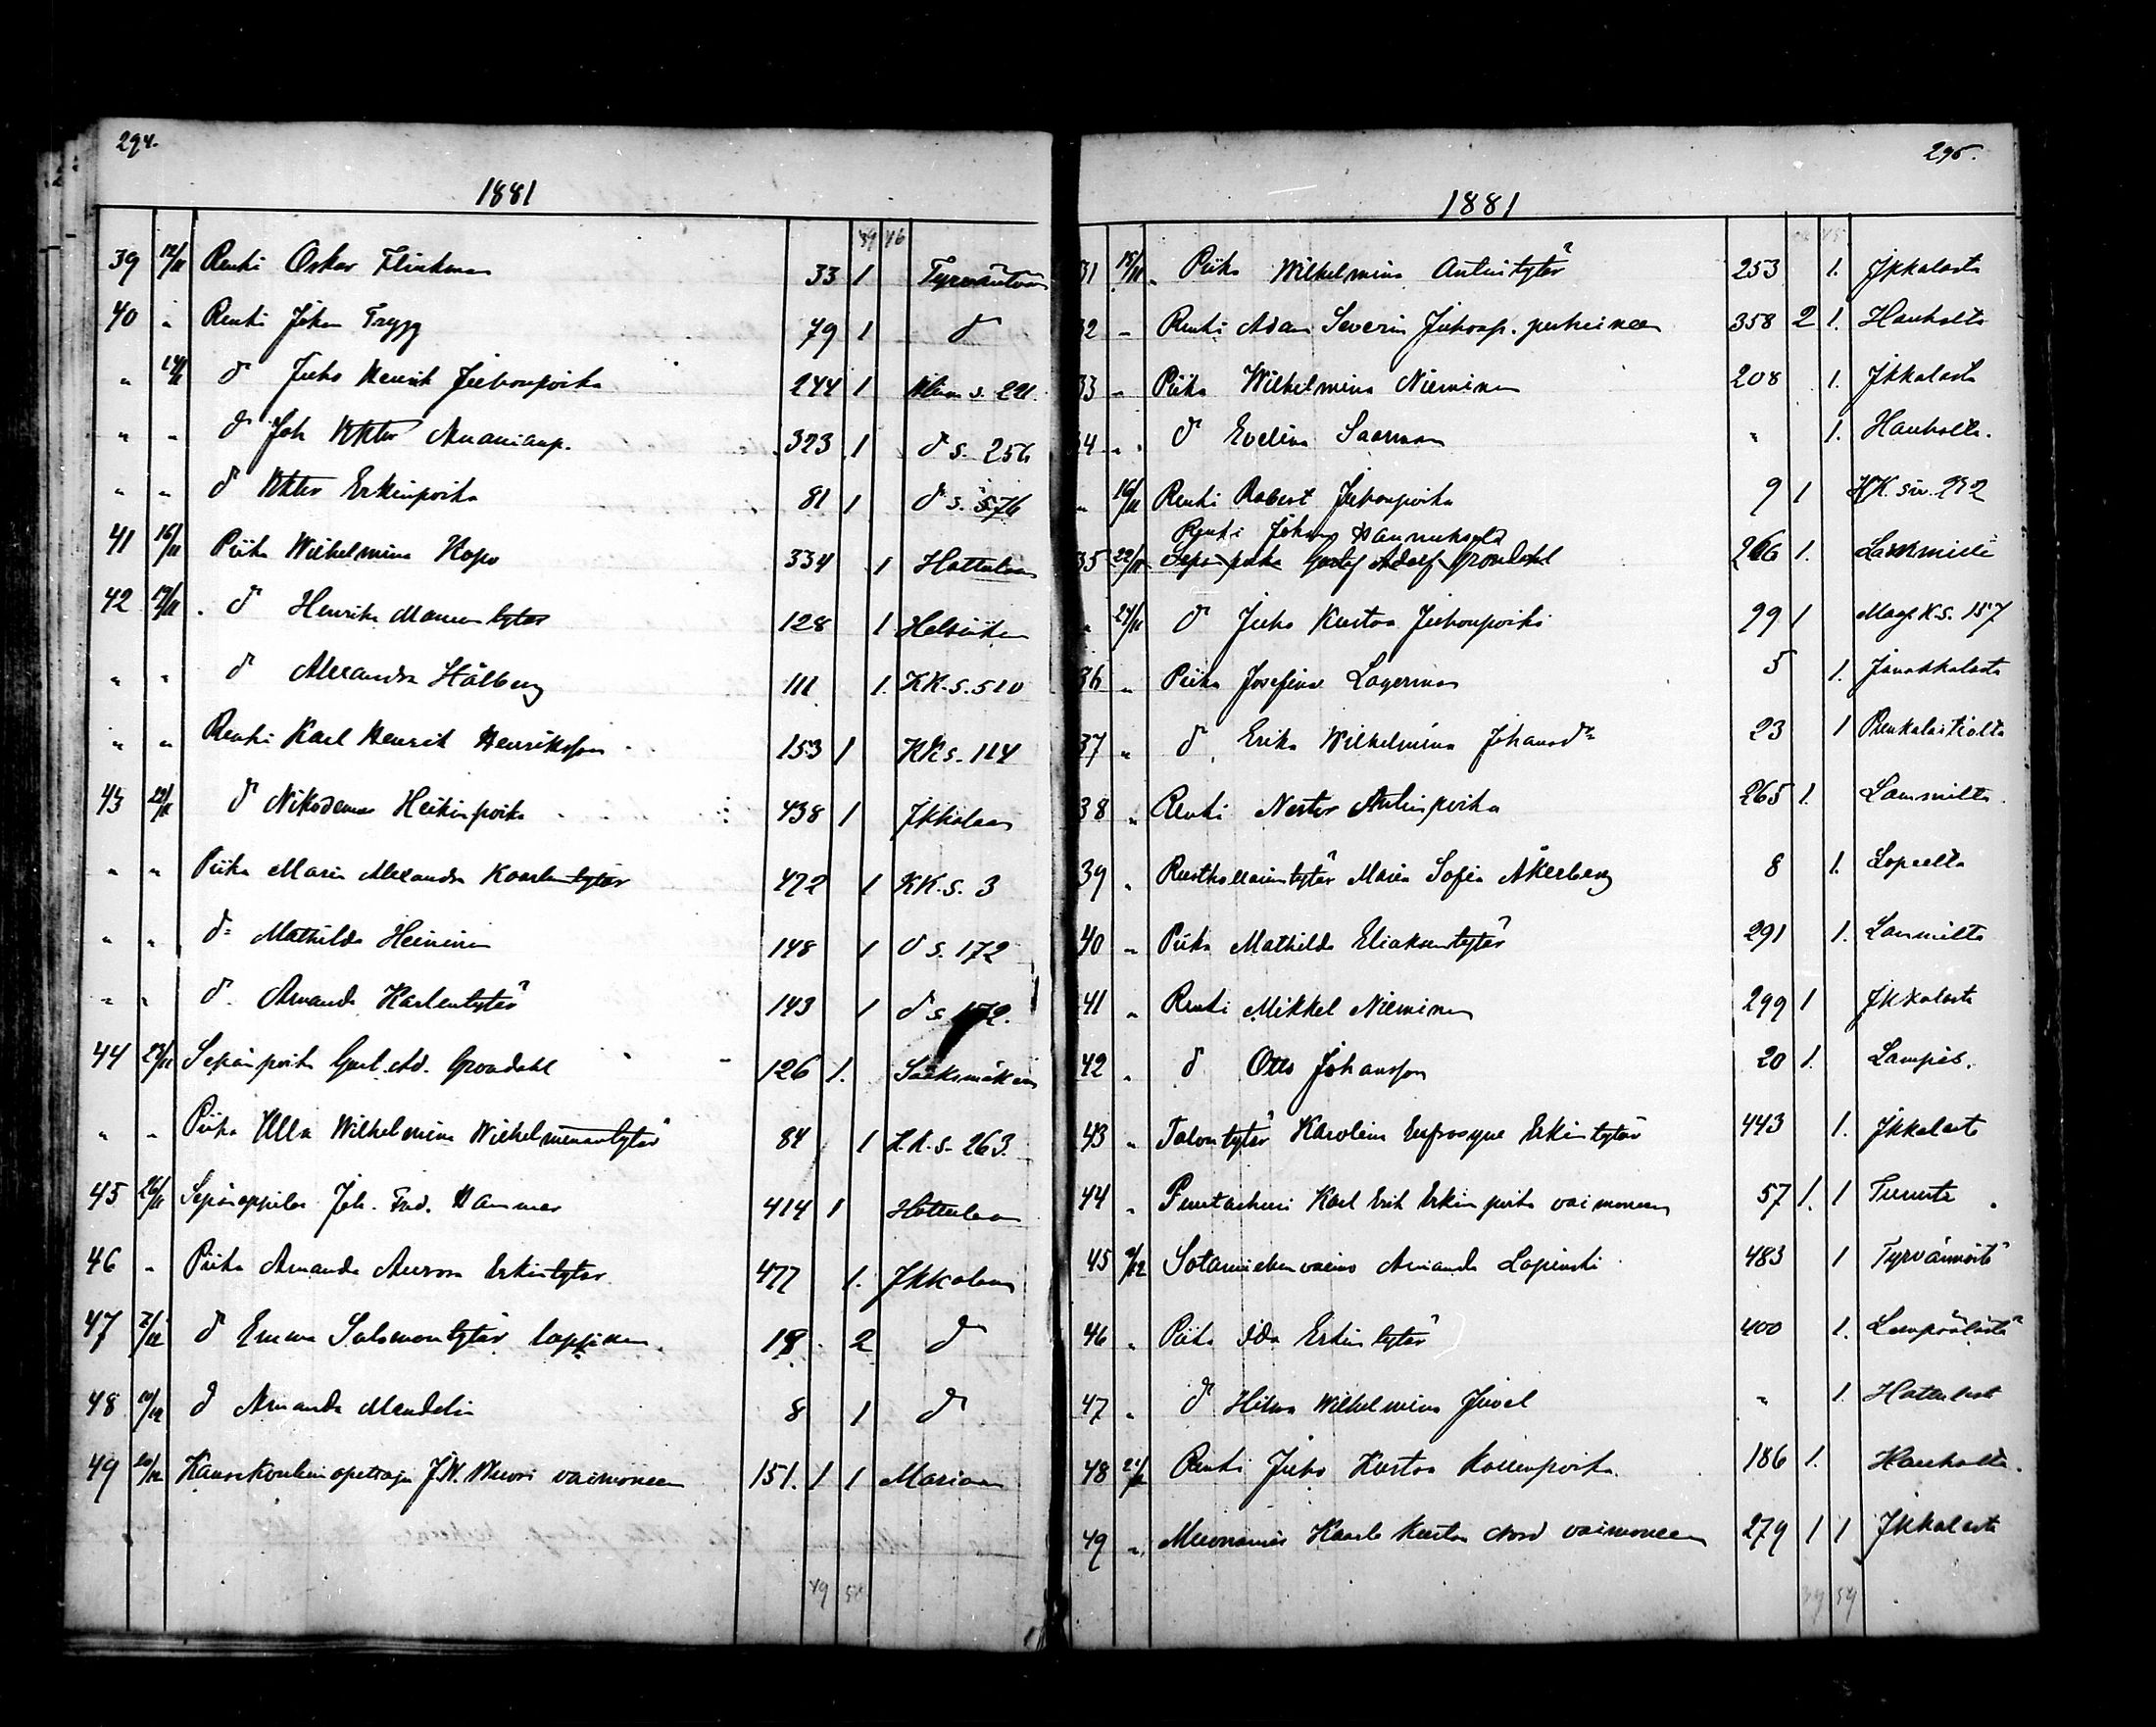 294.
1881
39 12/11 Renki Oskar Flinkman 33 1 Tyrväntöön
40 " Renki Johan Trygg 79 1 d
" 14/11 d Juho Henrik Juhonpoika 244 1 s. 221
" " d Joh Viktor Ananianp. 323 1 d s. 256
" " d Viktor Erkinpoika 81 1 d s. 576
41 16/11 Piika Wilhelmina Kopo 334 1 Hattulaan
42 19/11 d Henrika Manuntytär 128 1 Helsinkiin
" " d Alexandra Stålberg 111 1. KK. s. 510
" " Renki Karl Henrik Henriksson 153 1 KK s. 114
43 22/11 d Nikodemus Heikinpoika 438 1 Jkkalaan
" " Piika Maria Alexandra Kaarlentytär 472 1 KK. s. 3
" " d:o Mathilda Heininen 148 1 d s. 172
" " d. Amanda Karlentytär 143 1 d s 172.
44 23/11 Sepänpoika Gust. Ad. Grondahl 126 1. Sääksmäkeen
" " Piika Ulla Wilhelmina Wilhelminantytär 84 1 L.K. s. 263.
45 26/11 Sepänoppilas Joh. Fred. Hammar 414 1 Hattulaan
46 " Piika Amanda Aurora Erkintytär 477 1. Jkkalaan
47 2/12 d Emma Salomontytär lapsineen 18 2 d
48 10/12 d Amanda Mandelin 8 1 d
49 20/12 Kansakoulun opettaja J.W. Wuori vaimoneen 151. 1 1 Mariaan
49
295.
1881
31 15/11 Piika Wilhelmina Antintytär 253 1. Jkkalasta
32 " Renki Adam Severin Juhonp. perheineen 358 2 1. Hauholta
33 " Piika Wilhelmina Nieminen 208 1. Jkkalasta
34 " d Evelina Saarman " 1. Hauholta.
" 16/11 Renki Robert Juhonpoika 9 1 KK. siv. 292
Renki Johan Hannuksela
35 22/11 Sepänpoika Gustaf Adolf Grondahl 266 1. Lammilta
" 24/11 d Juho Kustaa Juhonpoika 99 1 K.S. 157
36 " Piika Josefina Lagerman 5 1. Janakkalasta
37 " d Erika Wilhelmina Johansd:r 23 1 Renkalasta
38 " Renki Nestor Antinpoika 265 1. Lammilta.
39 " Rusthollarintytär Maria Sofia Åkerberg 8 1. Lopelta
40 " Piika Mathilda Eliakuntytär 291 1. Lammilta
41 " Renki Mikkel Nieminen 299 1 Jkkalasta
42 " d Otto Johansson 20 1. Lampis.
43 " Talontytär Karolina Eufrosyne Erkintytär 443 1. Jkkalasta
44 " Karl Erik Erkinpoika vaimoneen 57 1. 1
45 9/12 Sotamiehen vaimo Amanda Lapinski 483 1 Tyrvännöstä
46 " Piika Ida Erkintytär 400 1. Lempäälästä
47 " d Hilma Wilhelmina Juvel " 1. Hattulasta
48 21/12 Renki Juho Kustaa Kallenpoika 186 1. Hauholta.
49 " Muonamies Kaarle Kustaa Nord vaimoneen 279 1 1 Jkkalasta
39 54